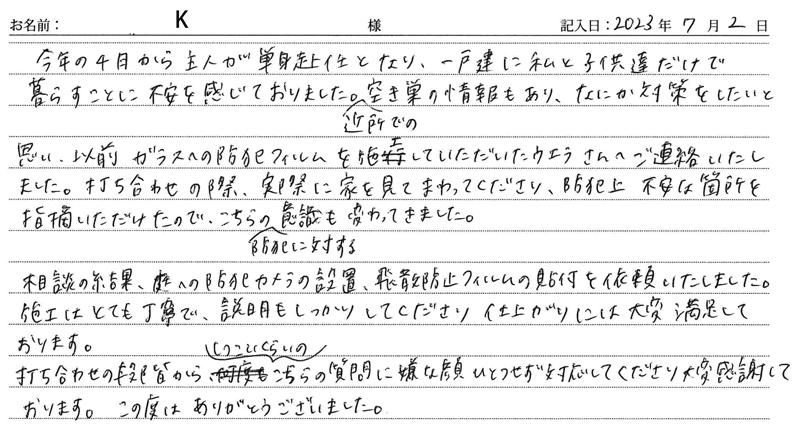 お名前： K 様 記入日：2023年 7月 2日
今年の4月から主人が単身赴任となり、一戸建に私と子供達だけで
暮らすことに不安を感じておりました。近所での空き巣の情報もあり、なにか対策をしたいと
思い、以前ガラスへの防犯フィルムを施工していただいたウエラさんへご連絡いたし
ました。打ち合わせの際、実際に家を見てまわってくださり、防犯上不安な箇所を
指摘いただけたので、こちらの防犯に対する意識も変わってきました。
相談の結果、庭への防犯カメラの設置、飛散防止フィルムの貼付を依頼いたしました。
施工はとても丁寧で、説明もしっかりしてくださり仕上がりには大変満足して
おります。
打ち合わせの段階から、しつこいくらいのこちらの質問に嫌な顔ひとつせず対応してくださり大変感謝して
おります。この度はありがとうございました。